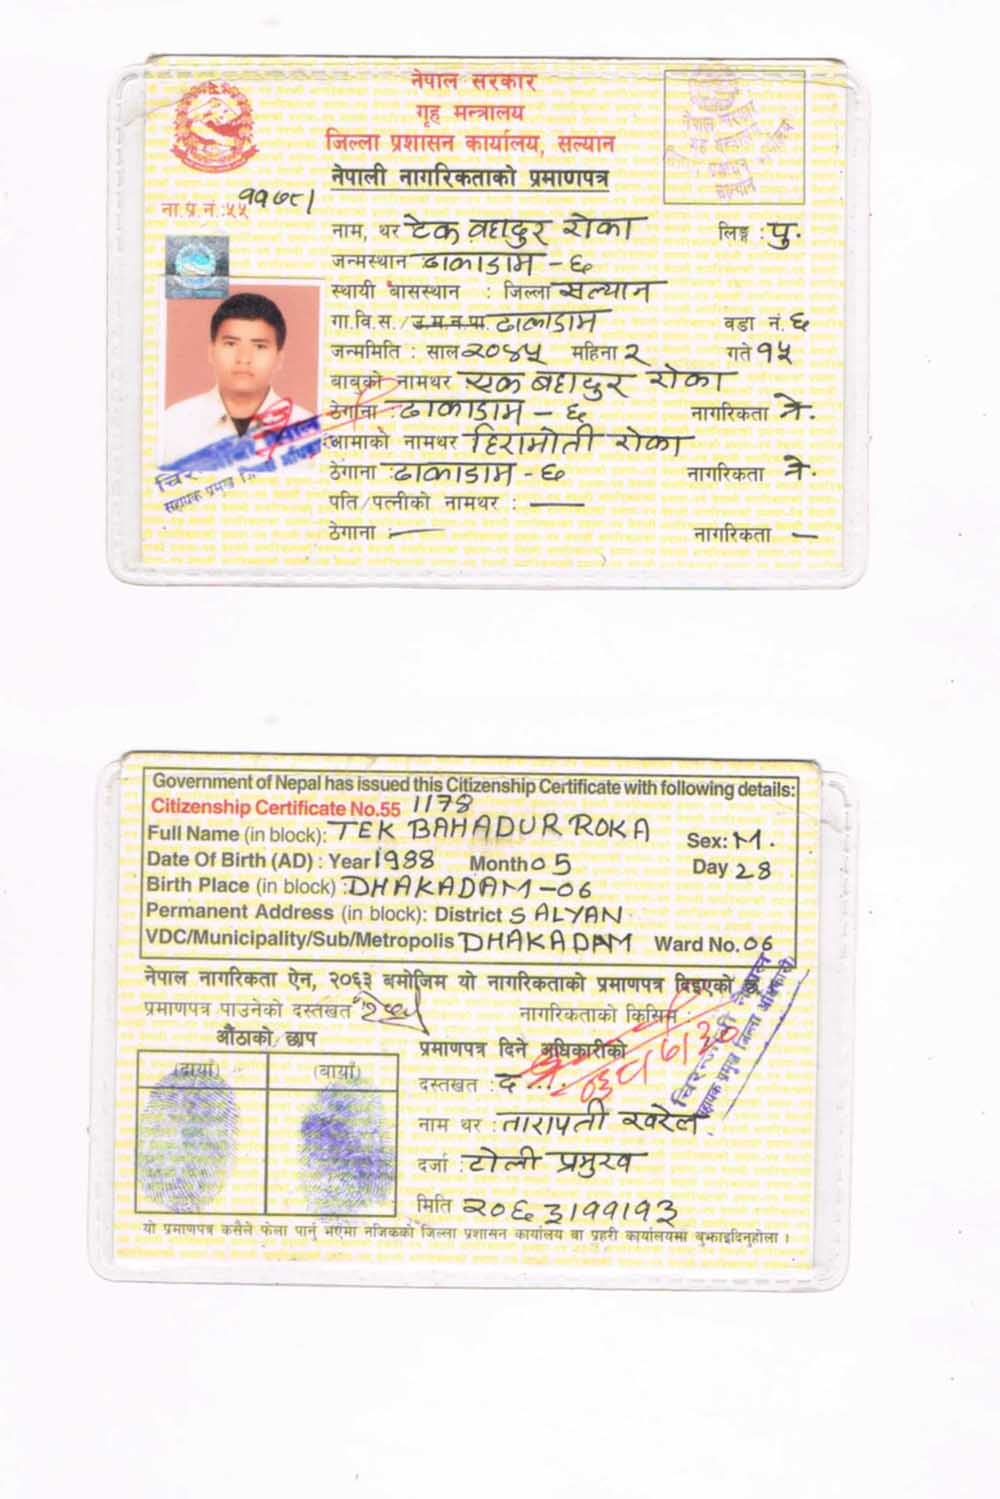 नेपाल सरकार
गृह मन्त्रालय
जिल्ला प्रशासन कार्यालय, सल्यान
नेपाली नागरिकताको प्रमाणपत्र
ना.प्र.नं.:५५ ११७८।
नाम, थर टेक वहादुर रोका लिङ्ग : पु.
जन्मस्थान ढाकाडाम - ६
स्थायी बासस्थान : जिल्ला सल्यान
गा.वि.स./उ.म.न.पा. ढाकाडाम वडा नं. ६
जन्ममिति : साल २०४५ महिना २ गते १५
बाबुको नामथर एक बहादुर रोका
ठेगाना : ढाकाडाम - ६ नागरिकता ने.
आमाको नामथर हिरामोती रोका
ठेगाना : ढाकाडाम - ६ नागरिकता ने.
पति/पत्नीको नामथर : —
ठेगाना : — नागरिकता —
सहायक प्रमुख जिल्ला अधिकारी
Government of Nepal has issued this Citizenship Certificate with following details:
Citizenship Certificate No.55 1178
Full Name (in block): TEK BAHADUR ROKA Sex: M.
Date Of Birth (AD) : Year 1988 Month 05 Day 28
Birth Place (in block) : DHAKADAM-06
Permanent Address (in block): District SALYAN
VDC/Municipality/Sub/Metropolis DHAKADAM Ward No. 06
नेपाल नागरिकता ऐन, २०६३ बमोजिम यो नागरिकताको प्रमाणपत्र दिइएको छ
प्रमाणपत्र पाउनेको दस्तखत
नागरिकताको किसिम :
औंठाको छाप
(दायाँ) (बायाँ)
प्रमाणपत्र दिने अधिकारीको
दस्तखत : द ...
नाम थर : तारापती खरेल
दर्जा : टोली प्रमुख
मिति २०६३।११।१३
सहायक प्रमुख जिल्ला अधिकारी
यो प्रमाणपत्र कसैले फेला पार्नु भएमा नजिकको जिल्ला प्रशासन कार्यालय वा प्रहरी कार्यालयमा बुझाइदिनुहोला ।